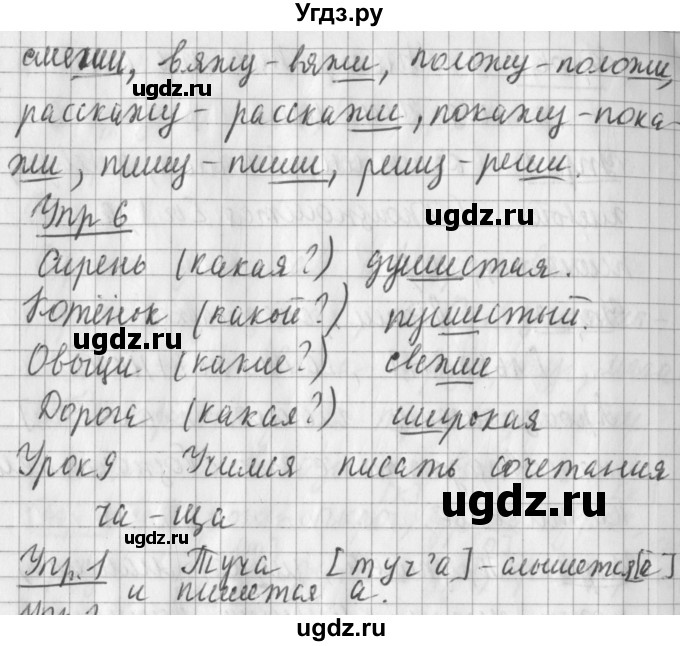 Угдз.ру
смеши, вяжу - вяжи, положу - положи,
ugdz.ru
ugdz.ru
расскажу - расскажи, покажу - пока-
жи, пишу - пиши, решу - реши.
Упр 6
ugdz.ru
Сирень (какая?) душистая.
Котёнок (какой?) пушистый.
ugdz.ru
Овощи (какие?) свежие
Дорога (какая?) широкая
Урок 9 Учимся писать сочетания
ugdz.ru
ugdz.ru
ча - ща
Упр. 1 Туча [туч'а] - слышится [а]
и пишется а.
ugdz.ru